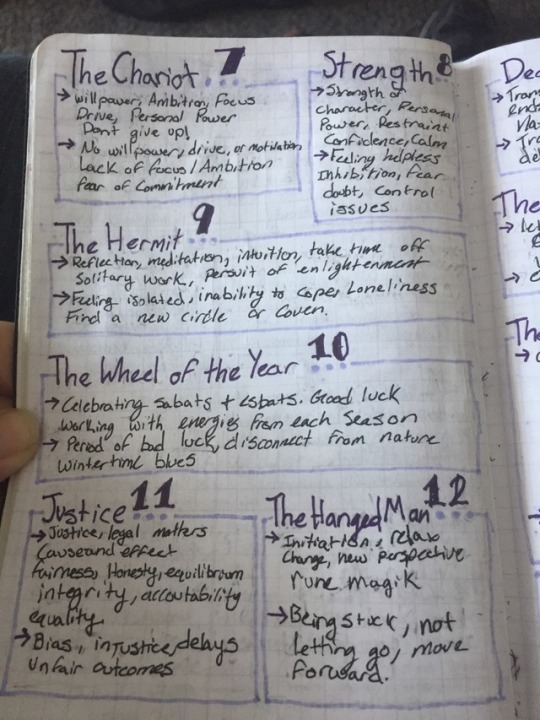 The Chariot 7
→ willpower, Ambition, Focus
Drive, Personal Power
Don't give up!
→ No willpower, drive, or motivation
Lack of focus/Ambition
fear of Commitment
Strength 8
→ Strength of
character, Personal
Power, Restraint
Confidence, Calm
→ Feeling helpless
Inhibition, fear
doubt, control
issues
The Hermit 9
→ Reflection, meditation, intuition, take time off
Solitary work, persuit of enlightenment
→ Feeling isolated, inability to cope, Loneliness
Find a new circle or Coven.
The Wheel of the Year 10
→ Celebrating sabats + esbats. Good luck
working with energies from each Season
→ Period of bad luck, disconnect from nature
wintertime blues
Justice 11
→ Justice, legal matters
Cause and effect
fairness, Honesty, equilibrium
integrity, accoutability
equality
→ Bias, injustice, delays
Unfair outcomes
The Hanged Man 12
→ Initiation, relax
Change, new perspective
rune magik
→ Being stuck, not
letting go, move
forward.
The
The